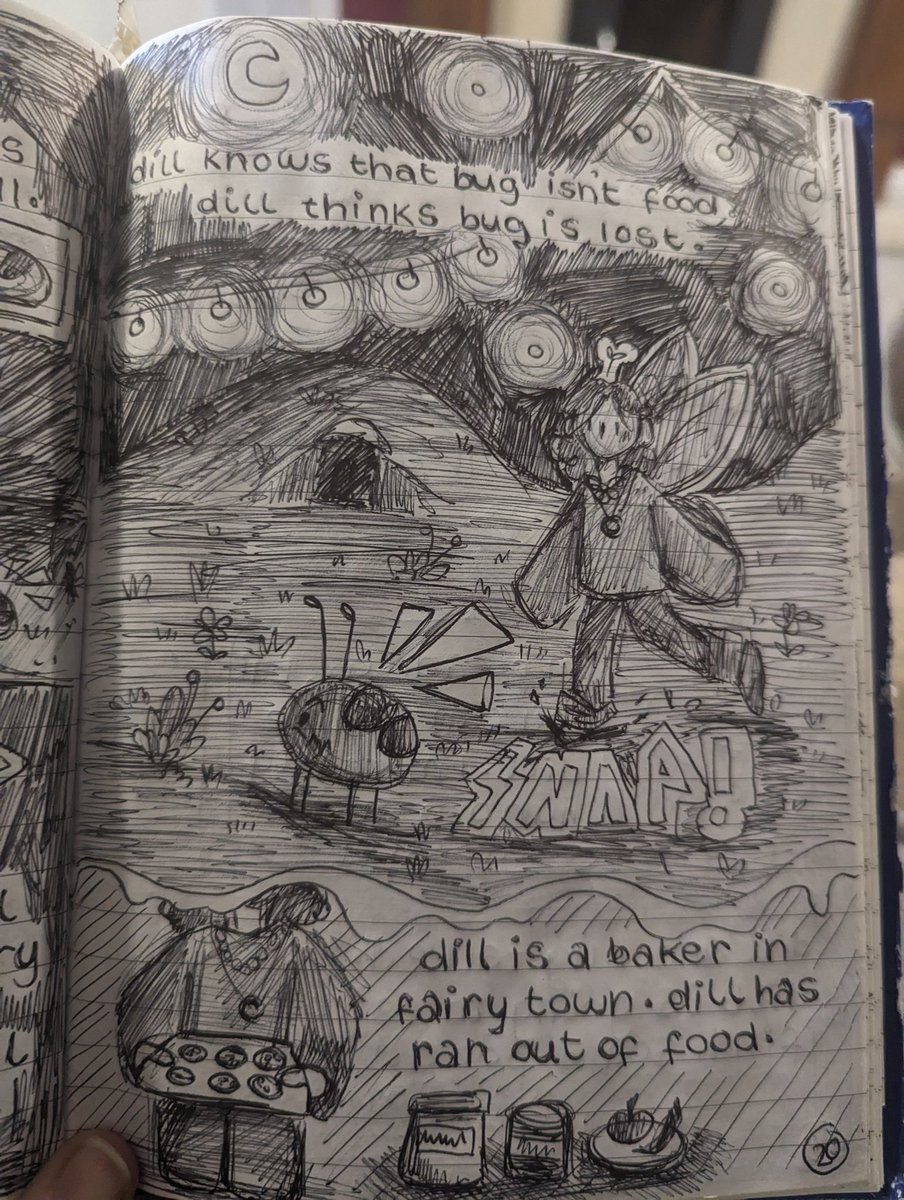 s
ll.
dill knows that bug isn't food.
dill thinks bug is lost.
SNAP!
ry
l
dill is a baker in
fairy town. dill has
ran out of food.
20